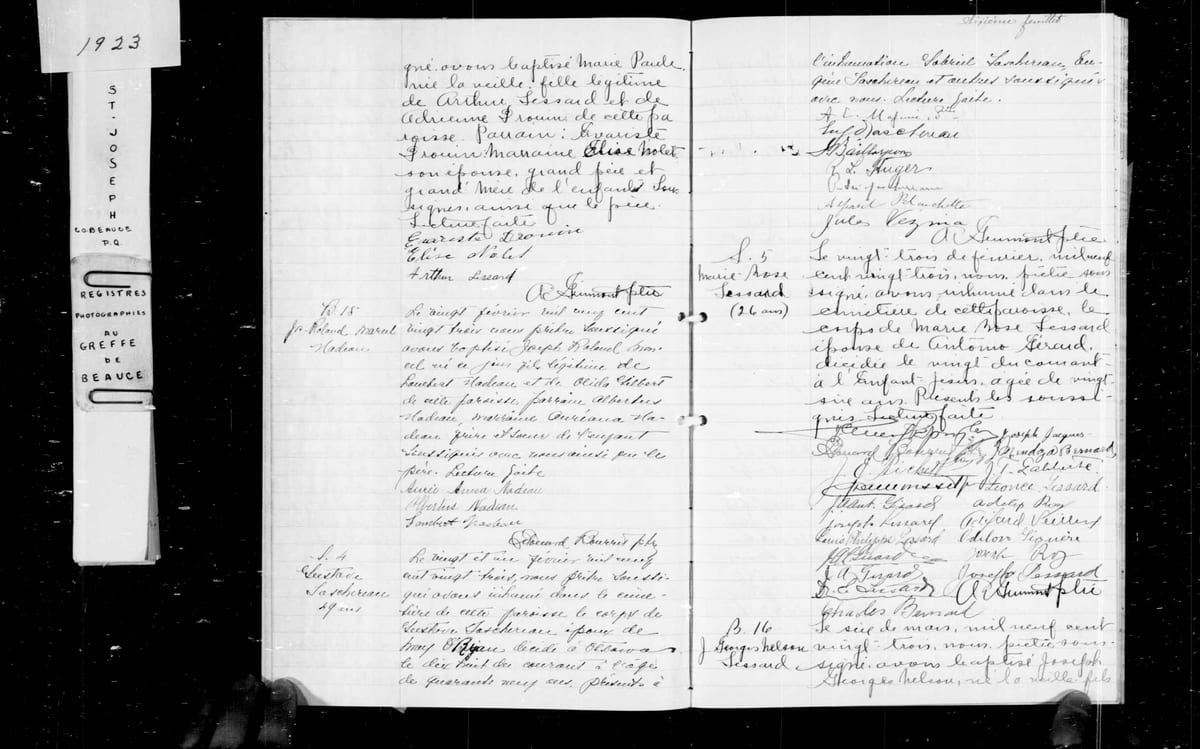 1923
ST-JOSEPH
CO BEAUCE
P.Q.
REGISTRES
PHOTOGRAPHIES
AU
GREFFE
DE
BEAUCE
gné, avons baptisé Marie Paule,
née la veille, fille légitime
de Arthur Lessard et de
Adrienne Drouin de cette pa
roisse. Parrain: Evariste
Drouin Marraine Elise Nolet
son épouse, grand père et
grand mère de l'enfant Sous
signés, ainsi que le père.
Lecture faite
Evariste Drouin
Elise Nolet
Arthur Lessard
ptre
B. 15
Js. Roland Marcel
Nadeau
Le vingt février mil neuf cent
vingt trois nous prêtre soussigné
avons baptisé Joseph Roland Mar-
cel né ce jour fils légitime de
Lambert Nadeau et de Olida
de cette paroisse, parrain Albertus
Nadeau, marraine Auréana Na-
deau frère et soeur de l'enfant
soussignés avec nous ainsi que le
père. Lecture faite
Anna Nadeau
Albertus Nadeau
Lambert Nadeau
Edouard ptr
S. 4
Gustave
Taschereau
49 ans
Le vingt et un février mil neuf
cent vingt trois, nous prêtre soussi-
gné avons inhumé dans le cime-
tière de cette paroisse le corps de
Gustave Taschereau époux de
Mary O'Ryan décédé à Ottawa
le dix huit du courant à l'âge
de quarante neuf ans, présents à
Sixième feuillet
l'inhumation Gabriel Taschereau, Eu-
gène Taschereau et autres soussignés
avec nous. Lecture faite.
Taschereau
J Baillargeon
L. Auger
Alfred Blanchette
Jules Vezina
ptre
S. 5
Marie-Rose
Lessard
(26 ans)
Le vingt-trois de février, mil neuf
cent vingt-trois, nous, prêtre sous
signé, avons inhumé dans le
cimetière de cette paroisse, le
corps de Marie Rose Lessard
épouse de Antonio Gérard,
décédée le vingt du courant
à l'Enfant-Jésus, agée de vingt-
six ans. Présents les soussi-
gnés Lecture faite.
Joseph Jacques
Bernard
T. Labberté
Lessard
Gérard
Joseph Lessard
Louis Philippe Lessard Odilon Giguère
Joseph Roy
Joseph Lessard
ptre
Charles Bernard
B. 16
J. Georges Nelson
Lessard
Le six de mars, mil neuf cent
vingt-trois, nous, prêtre sous-
signé, avons baptisé Joseph
Georges Nelson, né la veille, fils